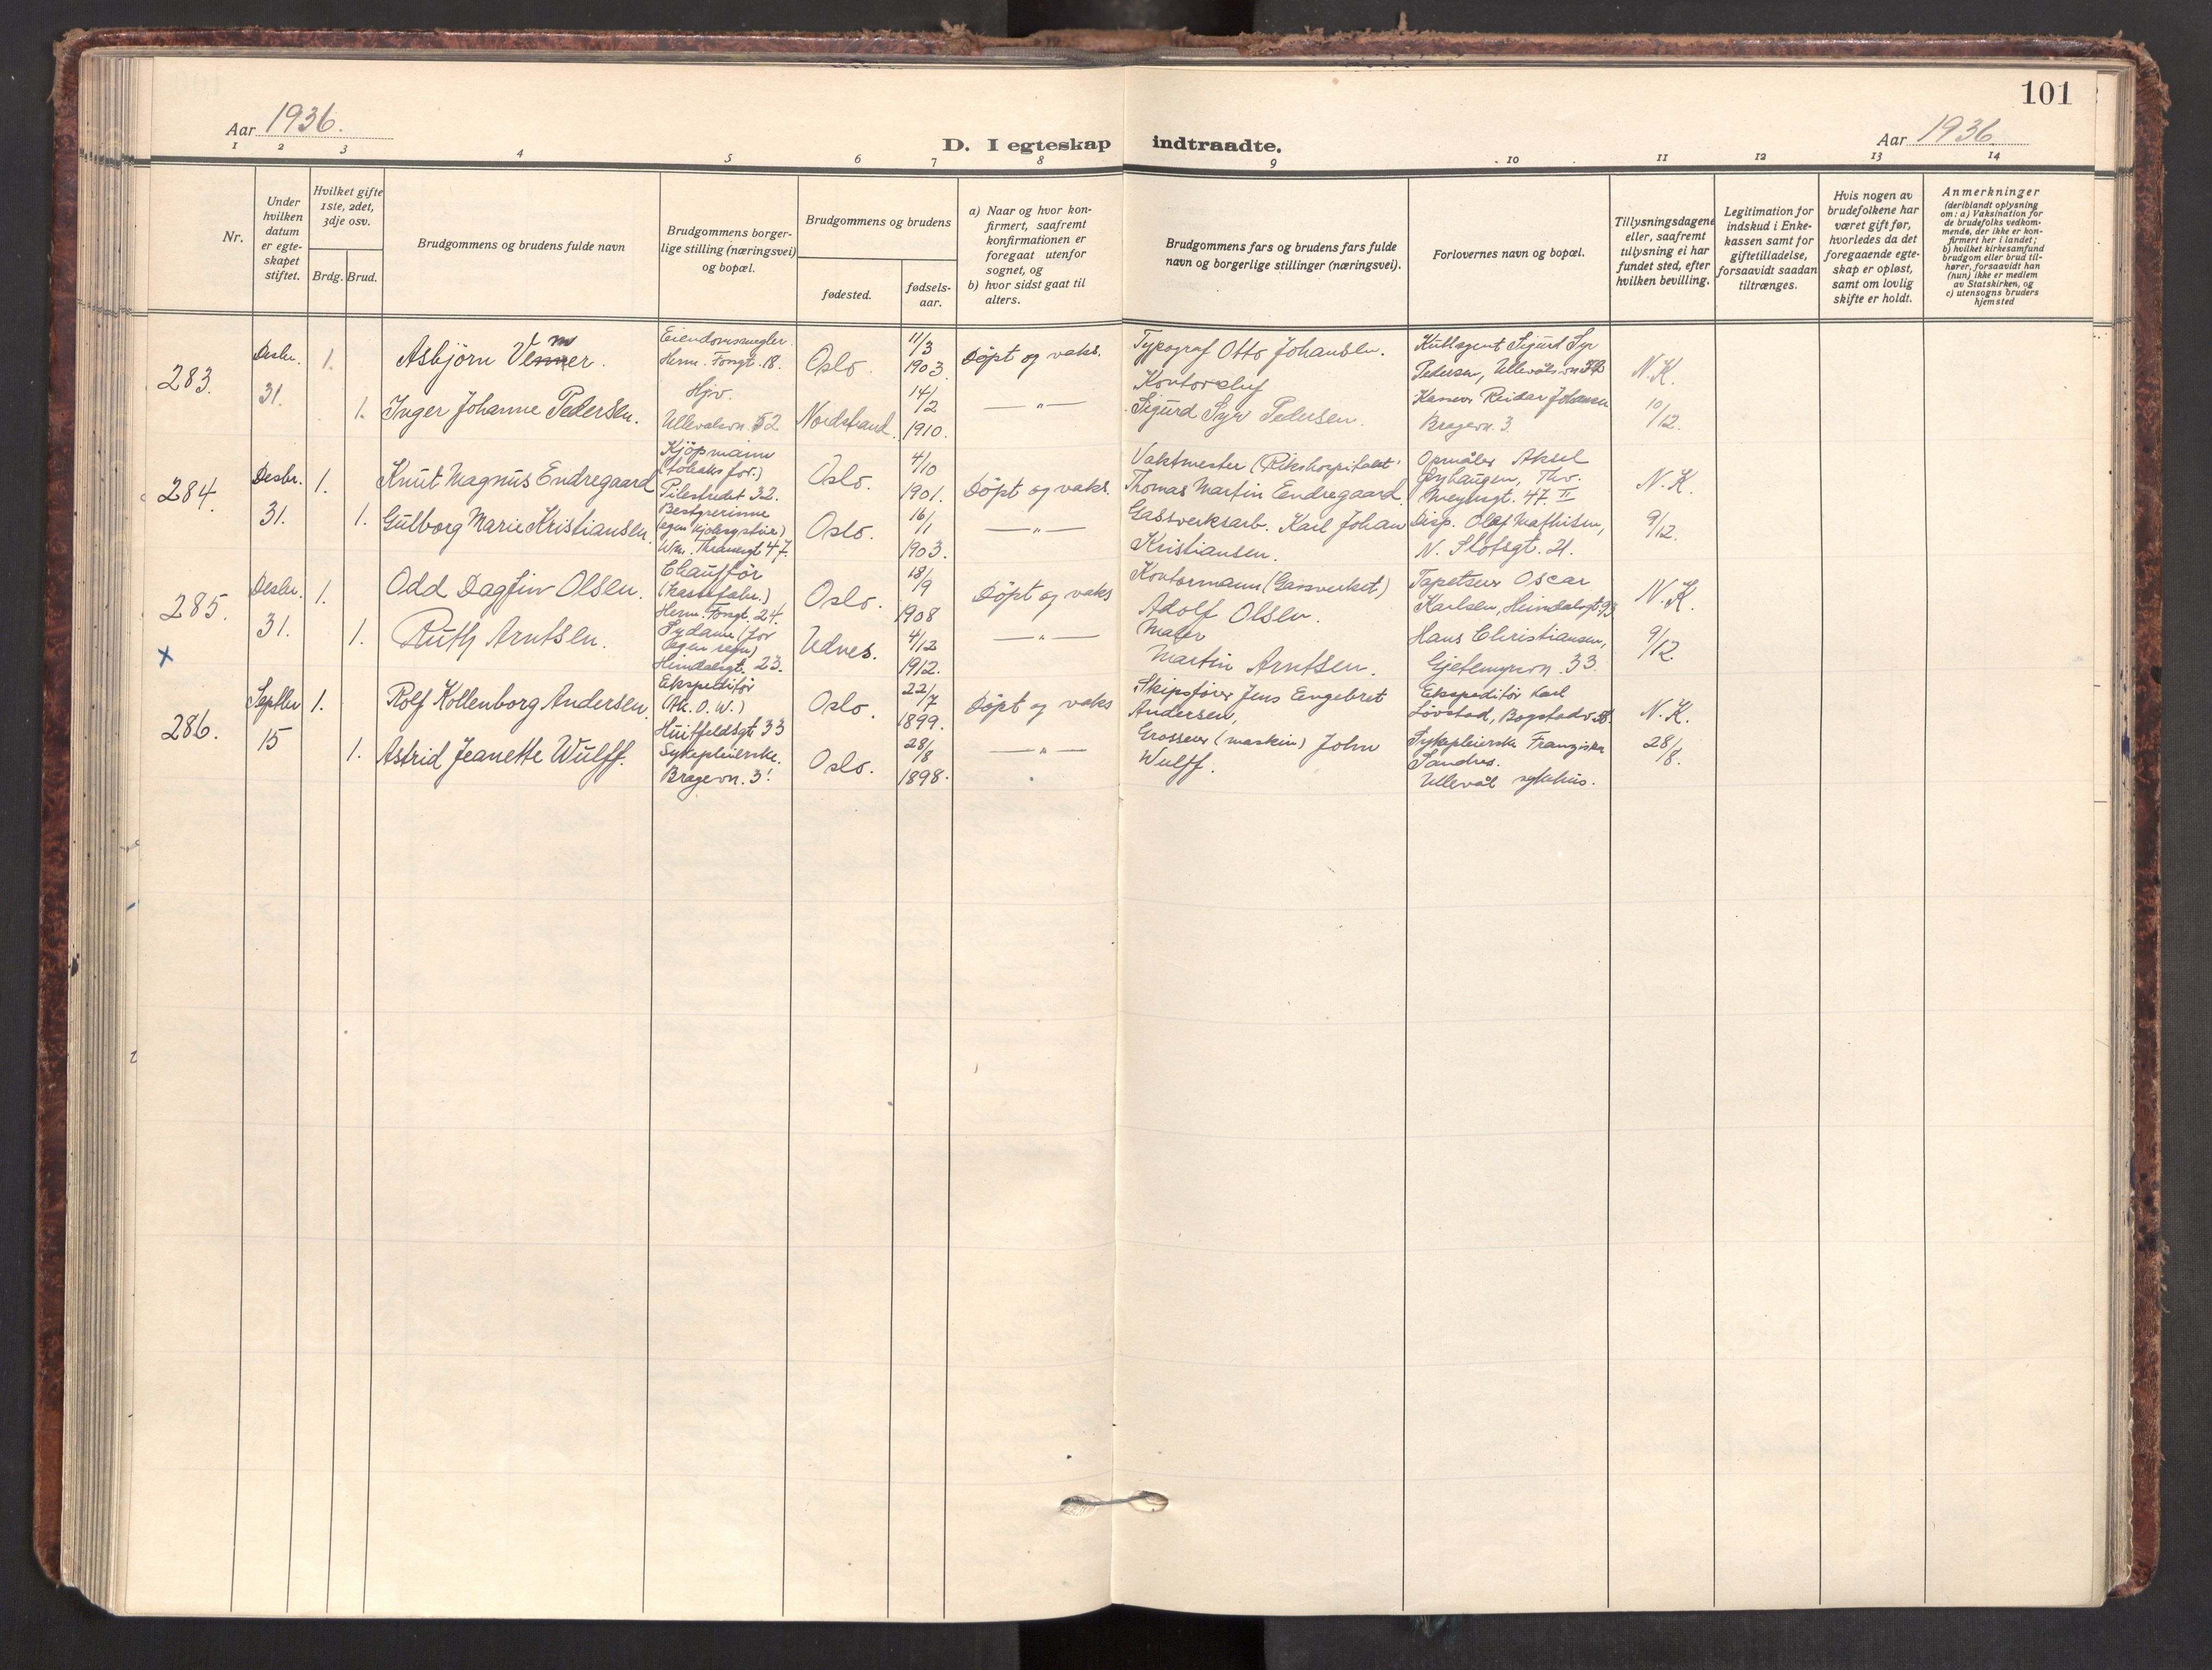 101
Aar 1936.
Aar 1936
D. I egteskap indtraadte.
1 2 3 4 5 6 7 8 9 10 11 12 13 14
Nr.
Under
hvilken
datum
er egte-
skapet
stiftet.
Hvilket gifte
1ste, 2det,
3dje osv.
Brdg. Brud.
Brudgommens og brudens fulde navn
Brudgommens borger-
lige stilling (næringsvei)
og bopæl.
Brudgommens og brudens
fødested.
fødsels-
aar.
a) Naar og hvor kon-
firmert, saafremt
konfirmationen er
foregaat utenfor
sognet, og
b) hvor sidst gaat til
alters.
Brudgommens fars og brudens fars fulde
navn og borgerlige stillinger (næringsvei).
Forlovernes navn og bopæl.
Tillysningsdagene
eller, saafremt
tillysning ei har
fundet sted, efter
hvilken bevilling.
Legitimation for
indskud i Enke-
kassen samt for
giftetilladelse,
forsaavidt saadan
tiltrænges.
Hvis nogen av
brudefolkene har
været gift før,
hvorledes da det
foregaaende egte-
skap er opløst,
samt om lovlig
skifte er holdt.
Anmerkninger
(deriblandt oplysning
om: a) Vaksination for
de brudefolks vedkom-
mende, der ikke er kon-
firmert her i landet;
b) hvilket kirkesamfund
brudgom eller brud til-
hører, forsaavidt han
(hun) ikke er medlem
av Statskirken, og
c) utensogns bruders
hjemsted
283.
Desbr.
31.
1.
Asbjørn Venner.
m
Eiendomsmegler
Herm. Fossgt. 18.
Oslo.
11/3
1903.
Döpt og vaks.
Typograf Otto Johansen.
Kullagent Sigurd Syr
Pedersen, Ullevålsvn 52
N.K.
10/12.
1.
Inger Johanne Pedersen.
Hjv.
Ullevalsvn. 52
Nordstrand.
14/2
1910.
— " —
Kontorchef
Sigurd Syr Pedersen.
Kasserer Reidar Johansen
Bragevn. 3.
284.
Desbr.
31.
1.
Knut Magnus Endregaard
Kjöpmann
(tobaks for.)
Pilestredet 32.
Oslo.
4/10
1901.
Döpt og vaks.
Vaktmester (Rikshospitalet)
Thomas Martin Endregaard
Opmåler Aksel
Thv.
Meyersgt. 47 II
N.K.
9/12.
1.
Gulborg Marie Kristiansen.
Bestyrerinne
Wm. Thranesgt 47.
Oslo.
16/1
1903.
— " —
Gassverksarb. Karl Johan
Kristiansen.
Disp. Olaf Mathisen,
N. Slotsgt. 21.
285.
x
Desbr.
31.
1.
Odd Dagfin Olsen.
Chaufför
Herm. Fossgt. 24.
Oslo.
18/9
1908
Döpt og vaks
Kontormann (Gassverket)
Adolf Olsen.
Tapetserer Oscar
Karlsen, Heimdalsgt. 93
N.K.
9/12.
1.
Ruth Arntsen.
Sydame (for
egen regn)
Heimdalsgt. 23.
Udnes.
4/12
1912.
— " —
Maler
Martin Arntsen.
Hans Christiansen,
Gjetemyrsvn. 33
286.
Septbr
15
1.
Rolf Kollenborg Andersen.
Ekspeditör
Huitfeldsgt 33
Oslo.
22/7
1899.
Döpt og vaks
Skipsfører Jens Engebret
Andersen,
Ekspeditör Karl
Lövstad, Bogstadv. 58.
N.K.
28/8.
1.
Astrid Jeanette Wulff.
Sykepleierske.
Bragevn. 3!
Oslo.
28/8
1898.
— " —
Grosserer (maskin) John
Wulff.
Sykepleierske Franziska
Sandres.
Ullevål sykehus.